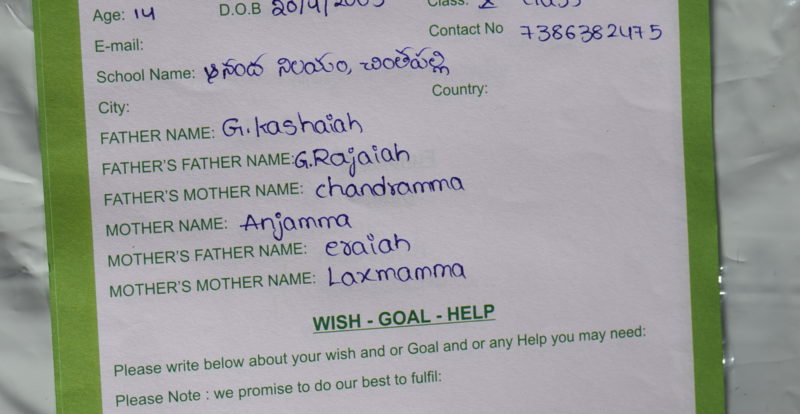 Age: 14 D.O.B 20/4/2005 Class: X class
E-mail: Contact No 7386382475
School Name: ఆనంద నిలయం, చింతపల్లి
City: Country:
FATHER NAME: G.Kashaiah
FATHER'S FATHER NAME:G.Rajaiah
FATHER'S MOTHER NAME: chandramma
MOTHER NAME: Anjamma
MOTHER'S FATHER NAME: eraiah
MOTHER'S MOTHER NAME: Laxmamma
WISH - GOAL - HELP
Please write below about your wish and or Goal and or any Help you may need:
Please Note : we promise to do our best to fulfil: